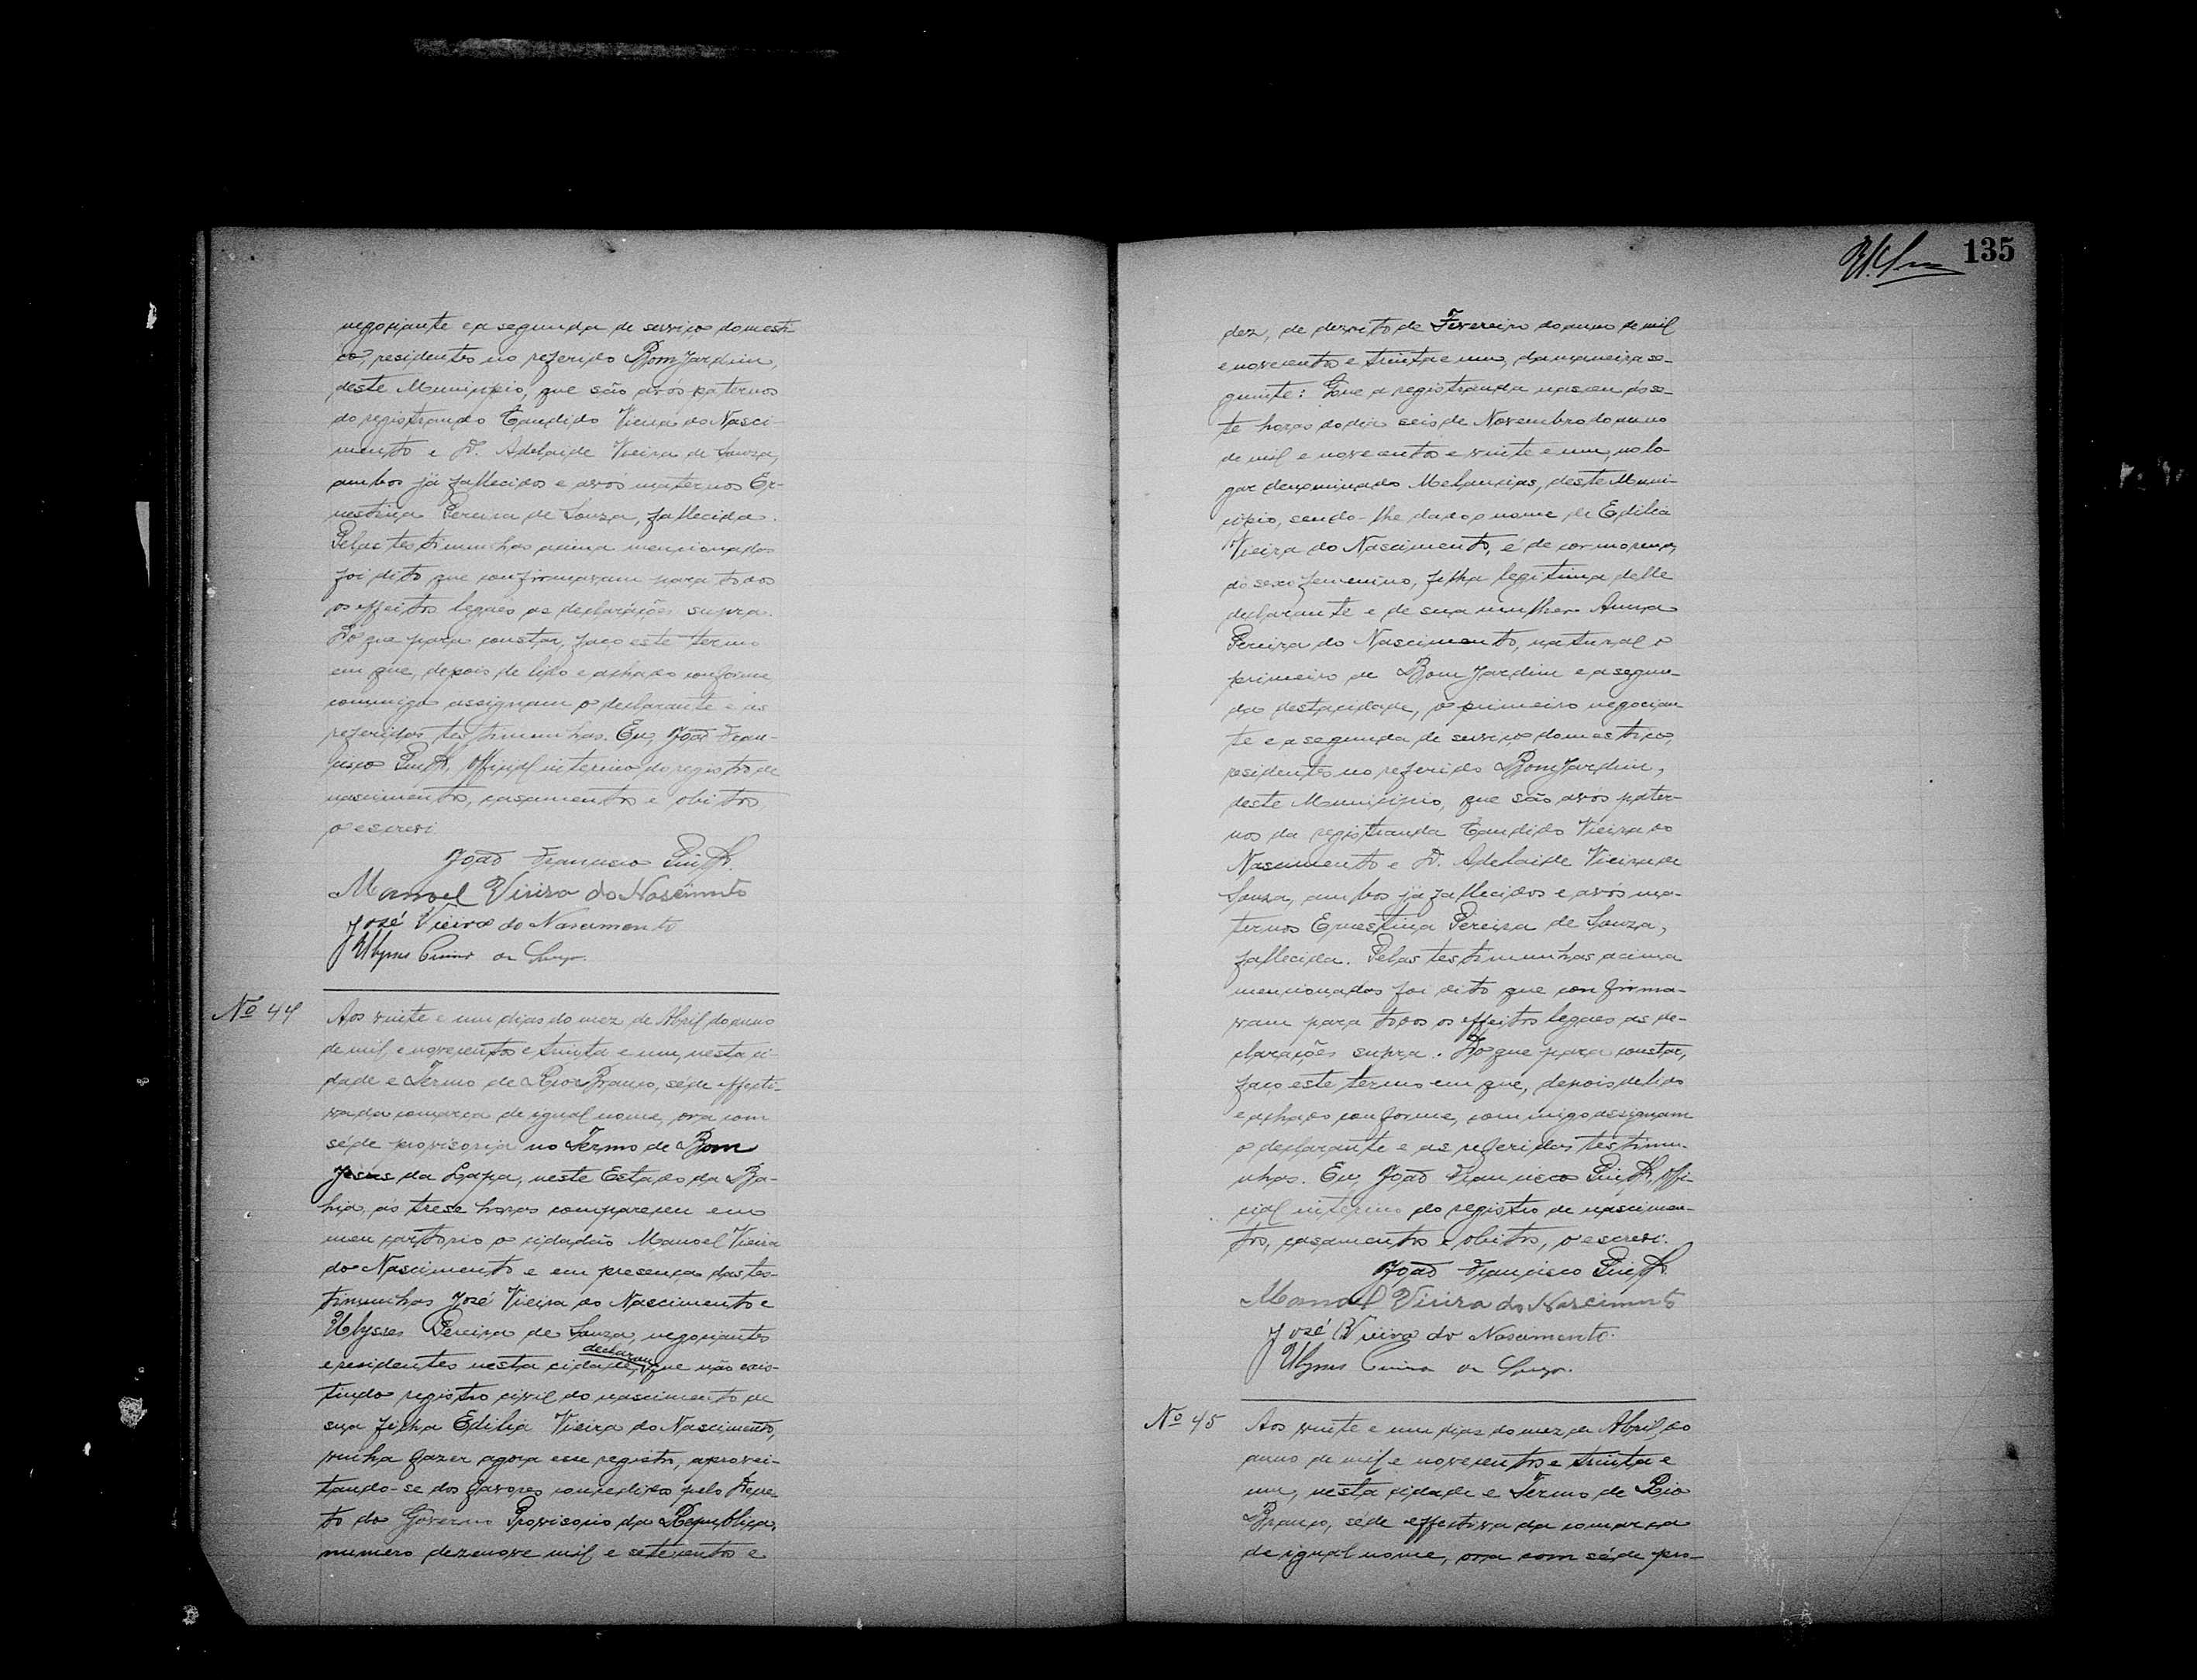 negociante e a segunda de serviço domesti-
co, residentes no referido Bom Jardim,
deste Municipio, que são avos paternos
do registrando Candido Vieira do Nasci-
mento e D. Adelaide Vieira de Souza,
ambos já fallecidos e avós maternos Er-
nestina Pereira de Souza, fallecida.
Pelas testimunhas acima mencionadas
foi dito que confirmavam para todos
os effeitos legaes as declarações supra.
Do que para constar, faço este termo
em que, depois de lido e achado conforme
commigo assignam o declarante e as
referidas testimunhas. Eu, João Fran-
cisco, Official interino do registro de
nascimentos, casamentos e obitos
o escrevi
João Francisco
Manoel Vieira do Nascimento
José Vieira do Nascimento
Ulysses Pereira de Souza.
Nº 44
Aos vinte e um dias do mez de Abril do anno
de mil e novecentos e trinta e um, nesta ci-
dade e Termo de Rio Branco, séde effecti-
va da comarca de igual nome, ora com
séde provisoria no Termo de Bom
Jesús da Lapa, neste Estado da Ba-
hia, ás trese horas compareceu em
meu cartorio o cidadão Manoel Vieira
do Nascimento e em presença das tes-
timunhas José Vieira do Nascimento e
Ulysses Pereira de Souza, negociantes
e residentes nesta cidade, declarou que não exis-
tindo registro civil do nascimento de
sua filha Edilia Vieira do Nascimento,
vinha fazer agora esse registro, aprovei-
tando-se dos favores concedidos pelo Decre-
to do Governo Provisorio da Republica,
numero dezenove mil e setecentos e
135
dez, de dezoito de Fevereiro do anno de mil
e novecentos e trinta e um, da maneira se-
guinte: Que a registranda nasceu ás se-
te horas do dia seis de Novembro do anno
de mil e novecentos e vinte e um, no lo-
gar denominado Melancias, deste Muni-
cipio, sendo-lhe dado o nome de Edilia
Vieira do Nascimento, é de cor morena,
do sexo femenino, filha legitima delle
declarante e de sua mulher Anna
Pereira do Nascimento, natural o
primeiro de Bom Jardim e a segun-
da desta cidade, o primeiro negocian-
te e a segunda de serviço domestico,
residentes no referido Bom Jardim,
deste Municipio, que são avós pater-
nos da registranda Candido Vieira do
Nascimento e D. Adelaide Vieira de
Souza, ambos já fallecidos e avós ma-
ternos Ernestina Pereira de Souza,
fallecida. Pelas testimunhas acima
mencionadas foi dito que confirma-
vam para todos os effeitos legaes as de-
clarações supra. Do que para constar,
faço este termo em que, depois de lido
e achado conforme, commigo assignam
o declarante e as referidas testimu-
nhas. Eu, João Francisco, Offi-
cial interino do registro de nascimen-
tos, casamentos e obitos, o escrevi.
João Francisco
Manoel Vieira do Nascimento
José Vieira do Nascimento.
Ulysses Pereira de Souza.
Nº 45
Aos vinte e um dias do mez de Abril, do
anno de mil e novecentos e trinta e
um, nesta cidade e Termo de Rio
Branco, séde effectiva da comarca
de igual nome, ora com séde pro-